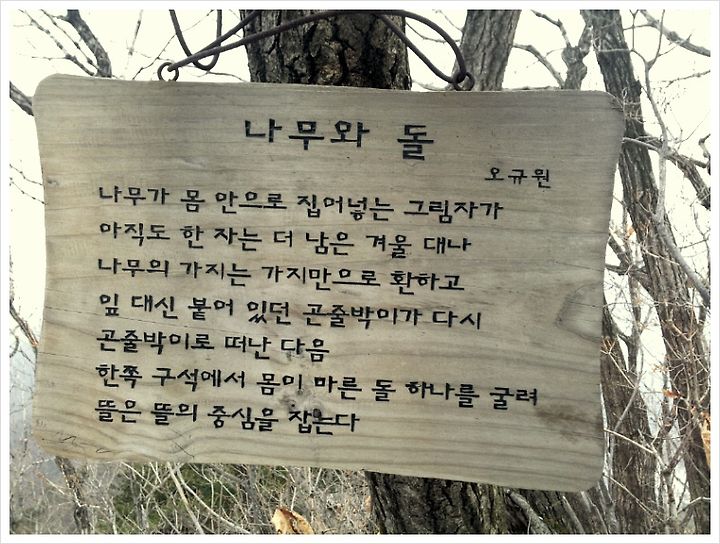 나무와 돌
오규원
나무가 몸 안으로 집어넣는 그림자가
아직도 한 자는 더 남은 겨울 대나
나무의 가지는 가지만으로 환하고
잎 대신 붙어 있던 곤줄박이가 다시
곤줄박이로 떠난 다음
한쪽 구석에서 몸이 마른 돌 하나를 굴려
뜰은 뜰의 중심을 잡는다